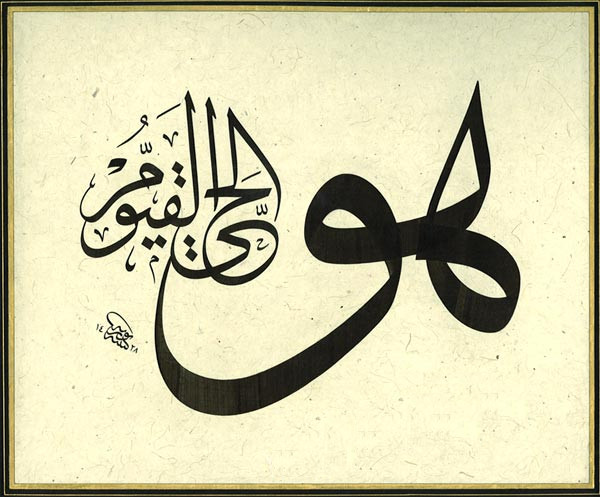 هو الحي القيوم
١٤٢٨